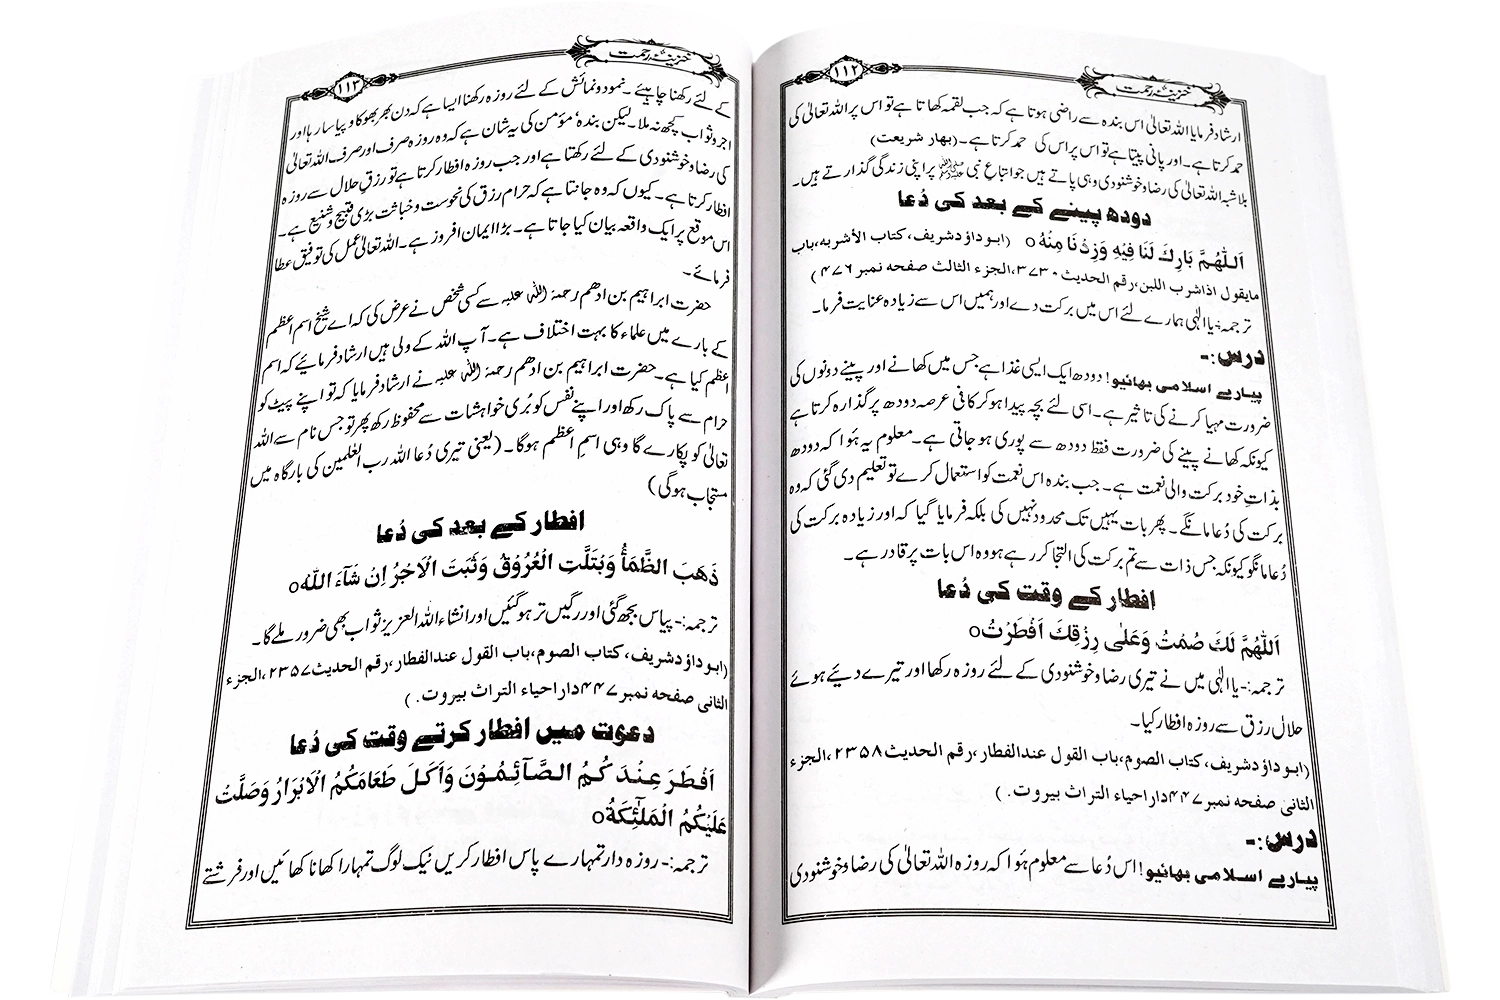 خزینۂ رحمت
۱۱۲
ارشاد فرمایا اللہ تعالیٰ اس بندہ سے راضی ہوتا ہے کہ جب لقمہ کھاتا ہے تو اس پر اللہ تعالیٰ کی
حمد کرتا ہے۔ اور پانی پیتا ہے تو اس پر اس کی حمد کرتا ہے۔ (بہار شریعت)
بلا شبہ اللہ تعالیٰ کی رضا و خوشنودی وہی پاتے ہیں جو اتباعِ نبی ﷺ پر اپنی زندگی گذارتے ہیں۔
دودھ پینے کے بعد کی دُعا
اَللّٰهُمَّ بَارِكْ لَنَا فِيْهِ وَزِدْنَا مِنْهُ ○ (ابو داؤد شریف، کتاب الأشربه، باب
مایقول اذا شرب اللبن، رقم الحدیث ۳۷۳۰، الجزء الثالث صفحه نمبر ۴۷۶)
ترجمہ:- یا الٰہی ہمارے لئے اس میں برکت دے اور ہمیں اس سے زیادہ عنایت فرما۔
درس:-
پیارے اسلامی بھائیو! دودھ ایک ایسی غذا ہے جس میں کھانے اور پینے دونوں کی
ضرورت مہیا کرنے کی تاثیر ہے۔ اسی لئے بچہ پیدا ہو کر کافی عرصہ دودھ پر گذارہ کرتا ہے
کیونکہ کھانے پینے کی ضرورت فقط دودھ سے پوری ہو جاتی ہے۔ معلوم یہ ہُوا کہ دودھ
بذاتِ خود برکت والی نعمت ہے۔ جب بندہ اس نعمت کو استعمال کرے تو تعلیم دی گئی کہ وہ
برکت کی دُعا مانگے۔ پھر بات یہیں تک محدود نہیں کی بلکہ فرمایا گیا کہ اور زیادہ برکت کی
دُعا مانگو کیونکہ جس ذات سے تم برکت کی التجا کر رہے ہو وہ اس بات پر قادر ہے۔
افطار کے وقت کی دُعا
اَللّٰهُمَّ لَكَ صُمْتُ وَعَلٰى رِزْقِكَ اَفْطَرْتُ○
ترجمہ:- یا الٰہی میں نے تیری رضا و خوشنودی کے لئے روزہ رکھا اور تیرے دیئے ہوئے
حلال رزق سے روزہ افطار کیا۔
(ابو داؤد شریف، کتاب الصوم، باب القول عند الفطار، رقم الحدیث ۲۳۵۸، الجزء
الثانی صفحه نمبر ۴۴۷ دار احیاء التراث بیروت.)
درس:-
پیارے اسلامی بھائیو! اس دُعا سے معلوم ہُوا کہ روزہ اللہ تعالیٰ کی رضا و خوشنودی
خزینۂ رحمت
۱۱۳
کے لئے رکھنا چاہیے۔ نمود و نمائش کے لئے روزہ رکھنا ایسا ہے کہ دن بھر بھوکا و پیاسا رہا اور
اجر و ثواب کچھ نہ ملا۔ لیکن بندہٗ مؤمن کی یہ شان ہے کہ وہ روزہ صرف اور صرف اللہ تعالیٰ
کی رضا و خوشنودی کے لئے رکھتا ہے اور جب روزہ افطار کرتا ہے تو رزقِ حلال سے روزہ
افطار کرتا ہے۔ کیوں کہ وہ جانتا ہے کہ حرام رزق کی نحوست و خباثت بڑی قبیح و شنیع ہے۔
اس موقع پر ایک واقعہ بیان کیا جاتا ہے۔ بڑا ایمان افروز ہے۔ اللہ تعالیٰ عمل کی توفیق عطا
فرمائے۔
حضرت ابراہیم بن ادھم رحمۃ اللہ علیہ سے کسی شخص نے عرض کی کہ اے شیخ اسمِ اعظم
کے بارے میں علماء کا بہت اختلاف ہے۔ آپ اللہ کے ولی ہیں ارشاد فرمائیے کہ اسم
اعظم کیا ہے۔ حضرت ابراہیم بن ادھم رحمۃ اللہ علیہ نے ارشاد فرمایا کہ تو اپنے پیٹ کو
حرام سے پاک رکھ اور اپنے نفس کو بُری خواہشات سے محفوظ رکھ پھر تو جس نام سے اللہ
تعالیٰ کو پکارے گا وہی اسمِ اعظم ہوگا۔ (یعنی تیری دُعا اللہ رب العٰلمین کی بارگاہ میں
مستجاب ہوگی)
افطار کے بعد کی دُعا
ذَهَبَ الظَّمَأُ وَبْتَلَّتِ الْعُرُوْقُ وَثَبَتَ الْاَجْرُ اِنْ شَآءَ اللّٰهُ○
ترجمہ:- پیاس بجھ گئی اور رگیں تر ہو گئیں اور انشاء اللہ العزیز ثواب بھی ضرور ملے گا۔
(ابو داؤد شریف، کتاب الصوم، باب القول عند الفطار، رقم الحدیث ۲۳۵۷، الجزء
الثانی صفحه نمبر ۴۴۷ دار احیاء التراث بیروت.)
دعوت میں افطار کرتے وقت کی دُعا
اَفْطَرَ عِنْدَ كُمُ الصَّآئِمُوْنَ وَاَكَلَ طَعَامَكُمُ الْاَبْرَارُ وَصَلَّتْ
عَلَيْكُمُ الْمَلٰٓئِكَةُ○
ترجمہ:- روزہ دار تمہارے پاس افطار کریں نیک لوگ تمہارا کھانا کھائیں اور فرشتے